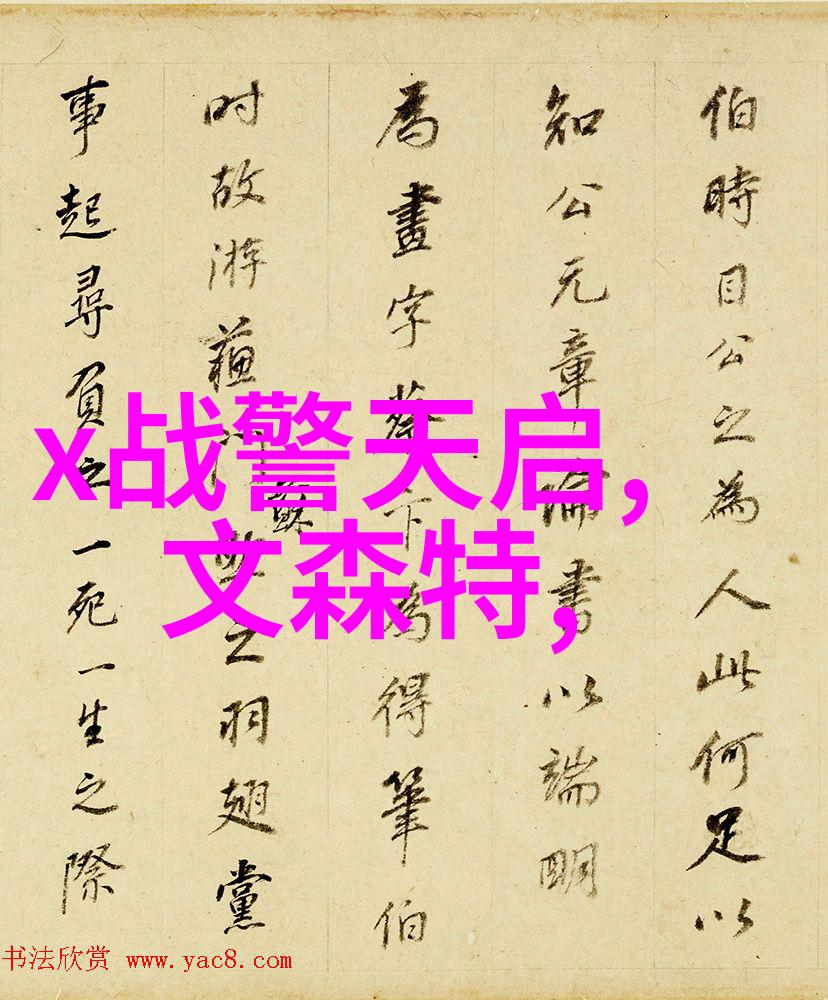 伯時目公之為人此何足以
知公元章論書以端明
為畫字蔡卞為得筆伯
时故游蘓之羽翅黨
事起尋負之一死一生之際
x战警天启,
文森特,
书法欣赏 www.yac8.com